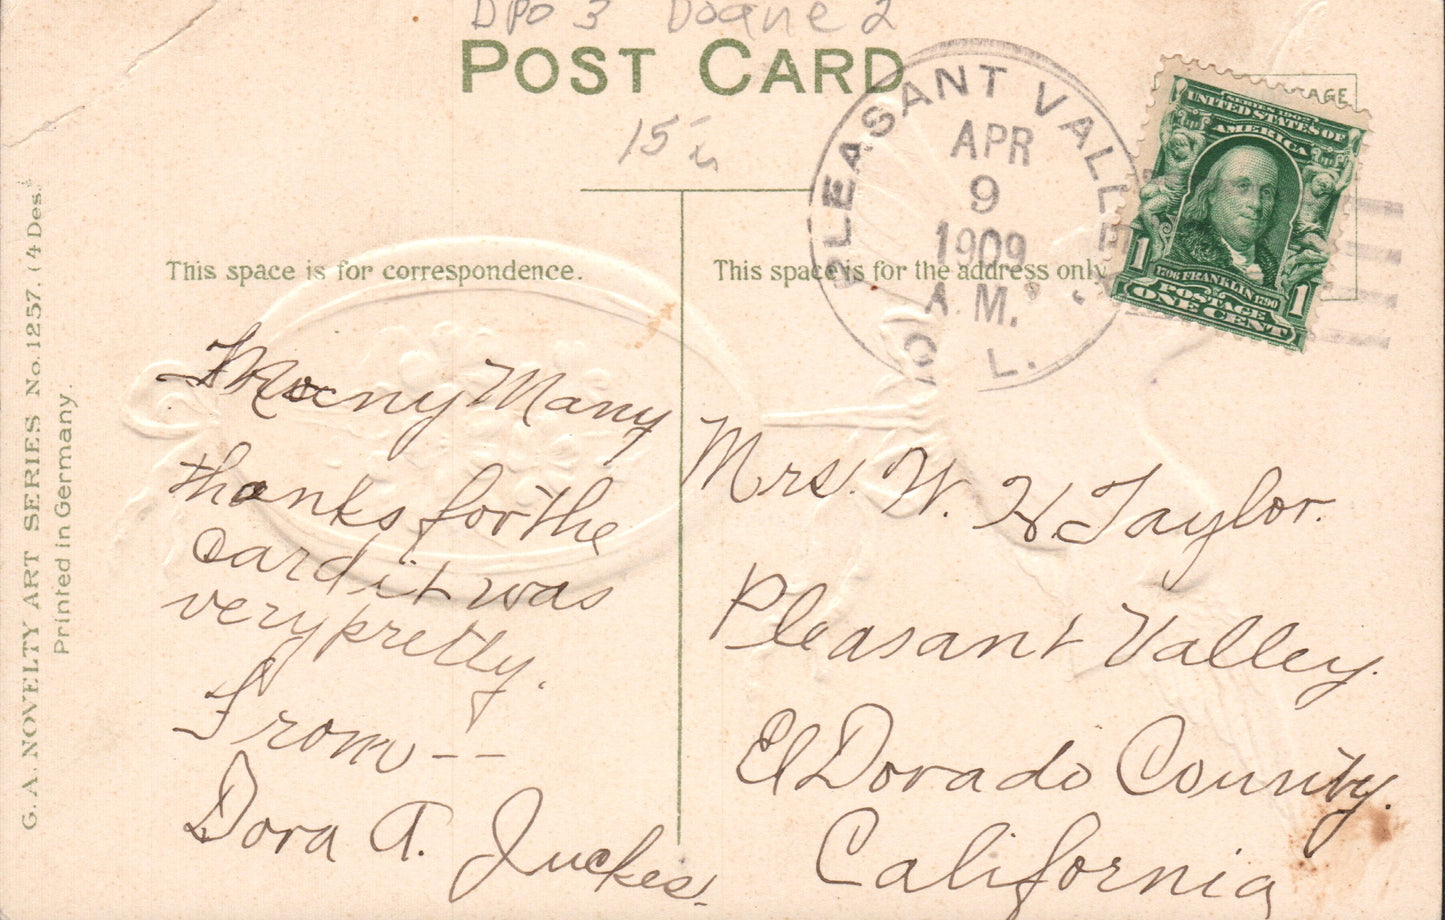 DPO 3 Doane 2
POST CARD
15
PLEASANT VALLE
APR
9
1909
A.M.
L.
SERIES 1902
UNITED STATES OF
AMERICA
1706 FRANKLIN 1790
POSTAGE
1 ONE CENT 1
AGE
This space is for correspondence.
Many Many
thanks for the
card it was
very pretty.
From --
Dora A. Juckes.
This space is for the address only
Mrs. W. H. Taylor.
Pleasant Valley.
El Dorado County.
California
G. A. NOVELTY ART SERIES No. 1257. (4 Des.)
Printed in Germany.